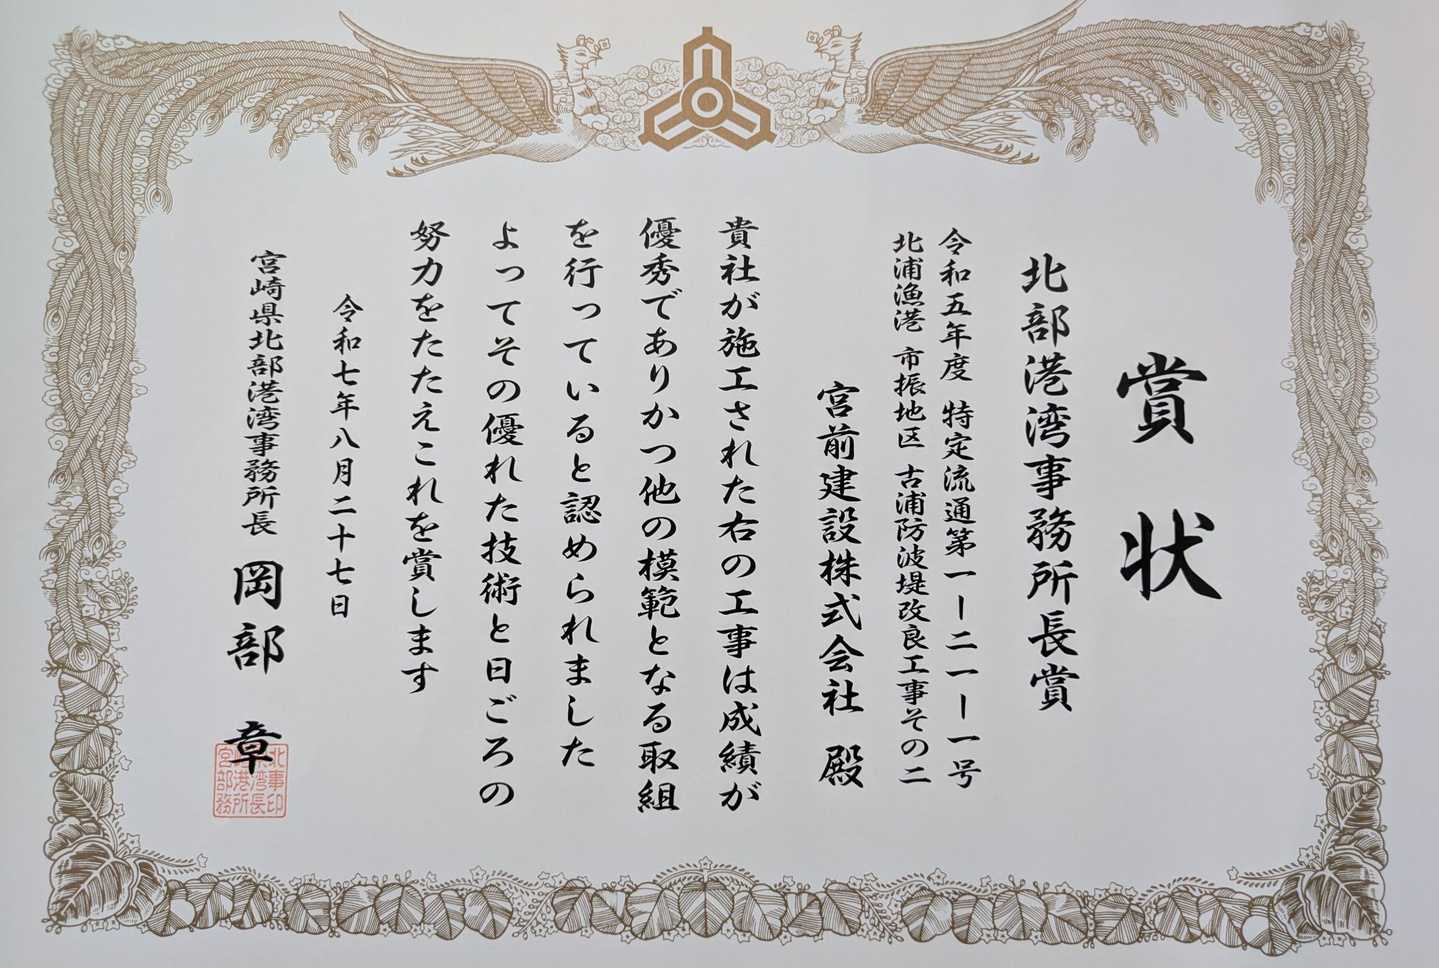 賞状
北部港湾事務所長賞
令和五年度 特定流通第一ー二一ー一号
北浦漁港 市振地区 古浦防波堤改良工事その二
宮前建設株式会社 殿
貴社が施工された右の工事は成績が
優秀でありかつ他の模範となる取組
を行っていると認められました
よってその優れた技術と日ごろの
努力をたたえこれを賞します
令和七年八月二十七日
宮崎県北部港湾事務所長 岡部 章